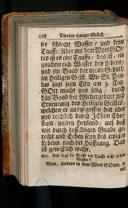 178 Viertes Haupt-Stück.
ser schlecht Wasser / und keine
Tauffe; Aber mit dem Wort GOt-
tes ist es eine Tauffe / das ist / ein
gnadenreich Wasser des Lebens /
und ein Baad der neuen Geburt
im Heiligen Geist. Wie St. Pau-
lus sagt zum Tito am 3. Cap.
GOtt macht uns selig / durch
das Baad der Wiedergeburt und
Erneuerung des Heiligen Geistes /
welchen er ausgegossen hat über
uns reichlich / durch JEsum Chri-
stum / unsern Heyland / auf daß
wir durch desselbigen Gnade ge-
recht und Erben seyn des ewigen
Lebens / nach der Hoffnung. Das
ist gewißlich wahr.
Nein, sondern in dem Wort